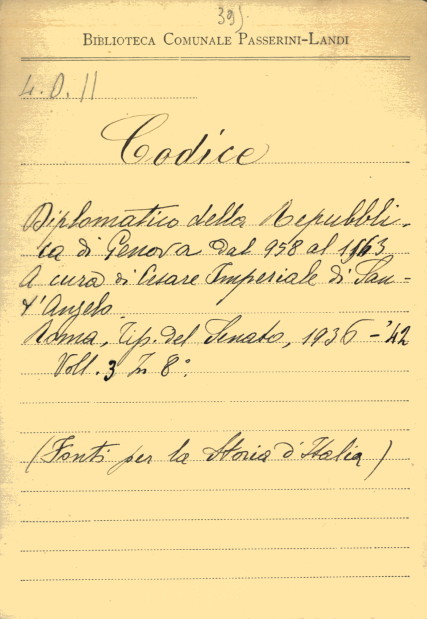 39).
BIBLIOTECA COMUNALE PASSERINI-LANDI
4.O.11
Codice
Diplomatico della Repubbli-
ca di Genova dal 958 al 1163
A cura di Cesare Imperiale di San-
t'Angelo.
Roma, Tip. del Senato, 1936-'42
Voll. 3 In 8°.
(Fonti per la Storia d'Italia)